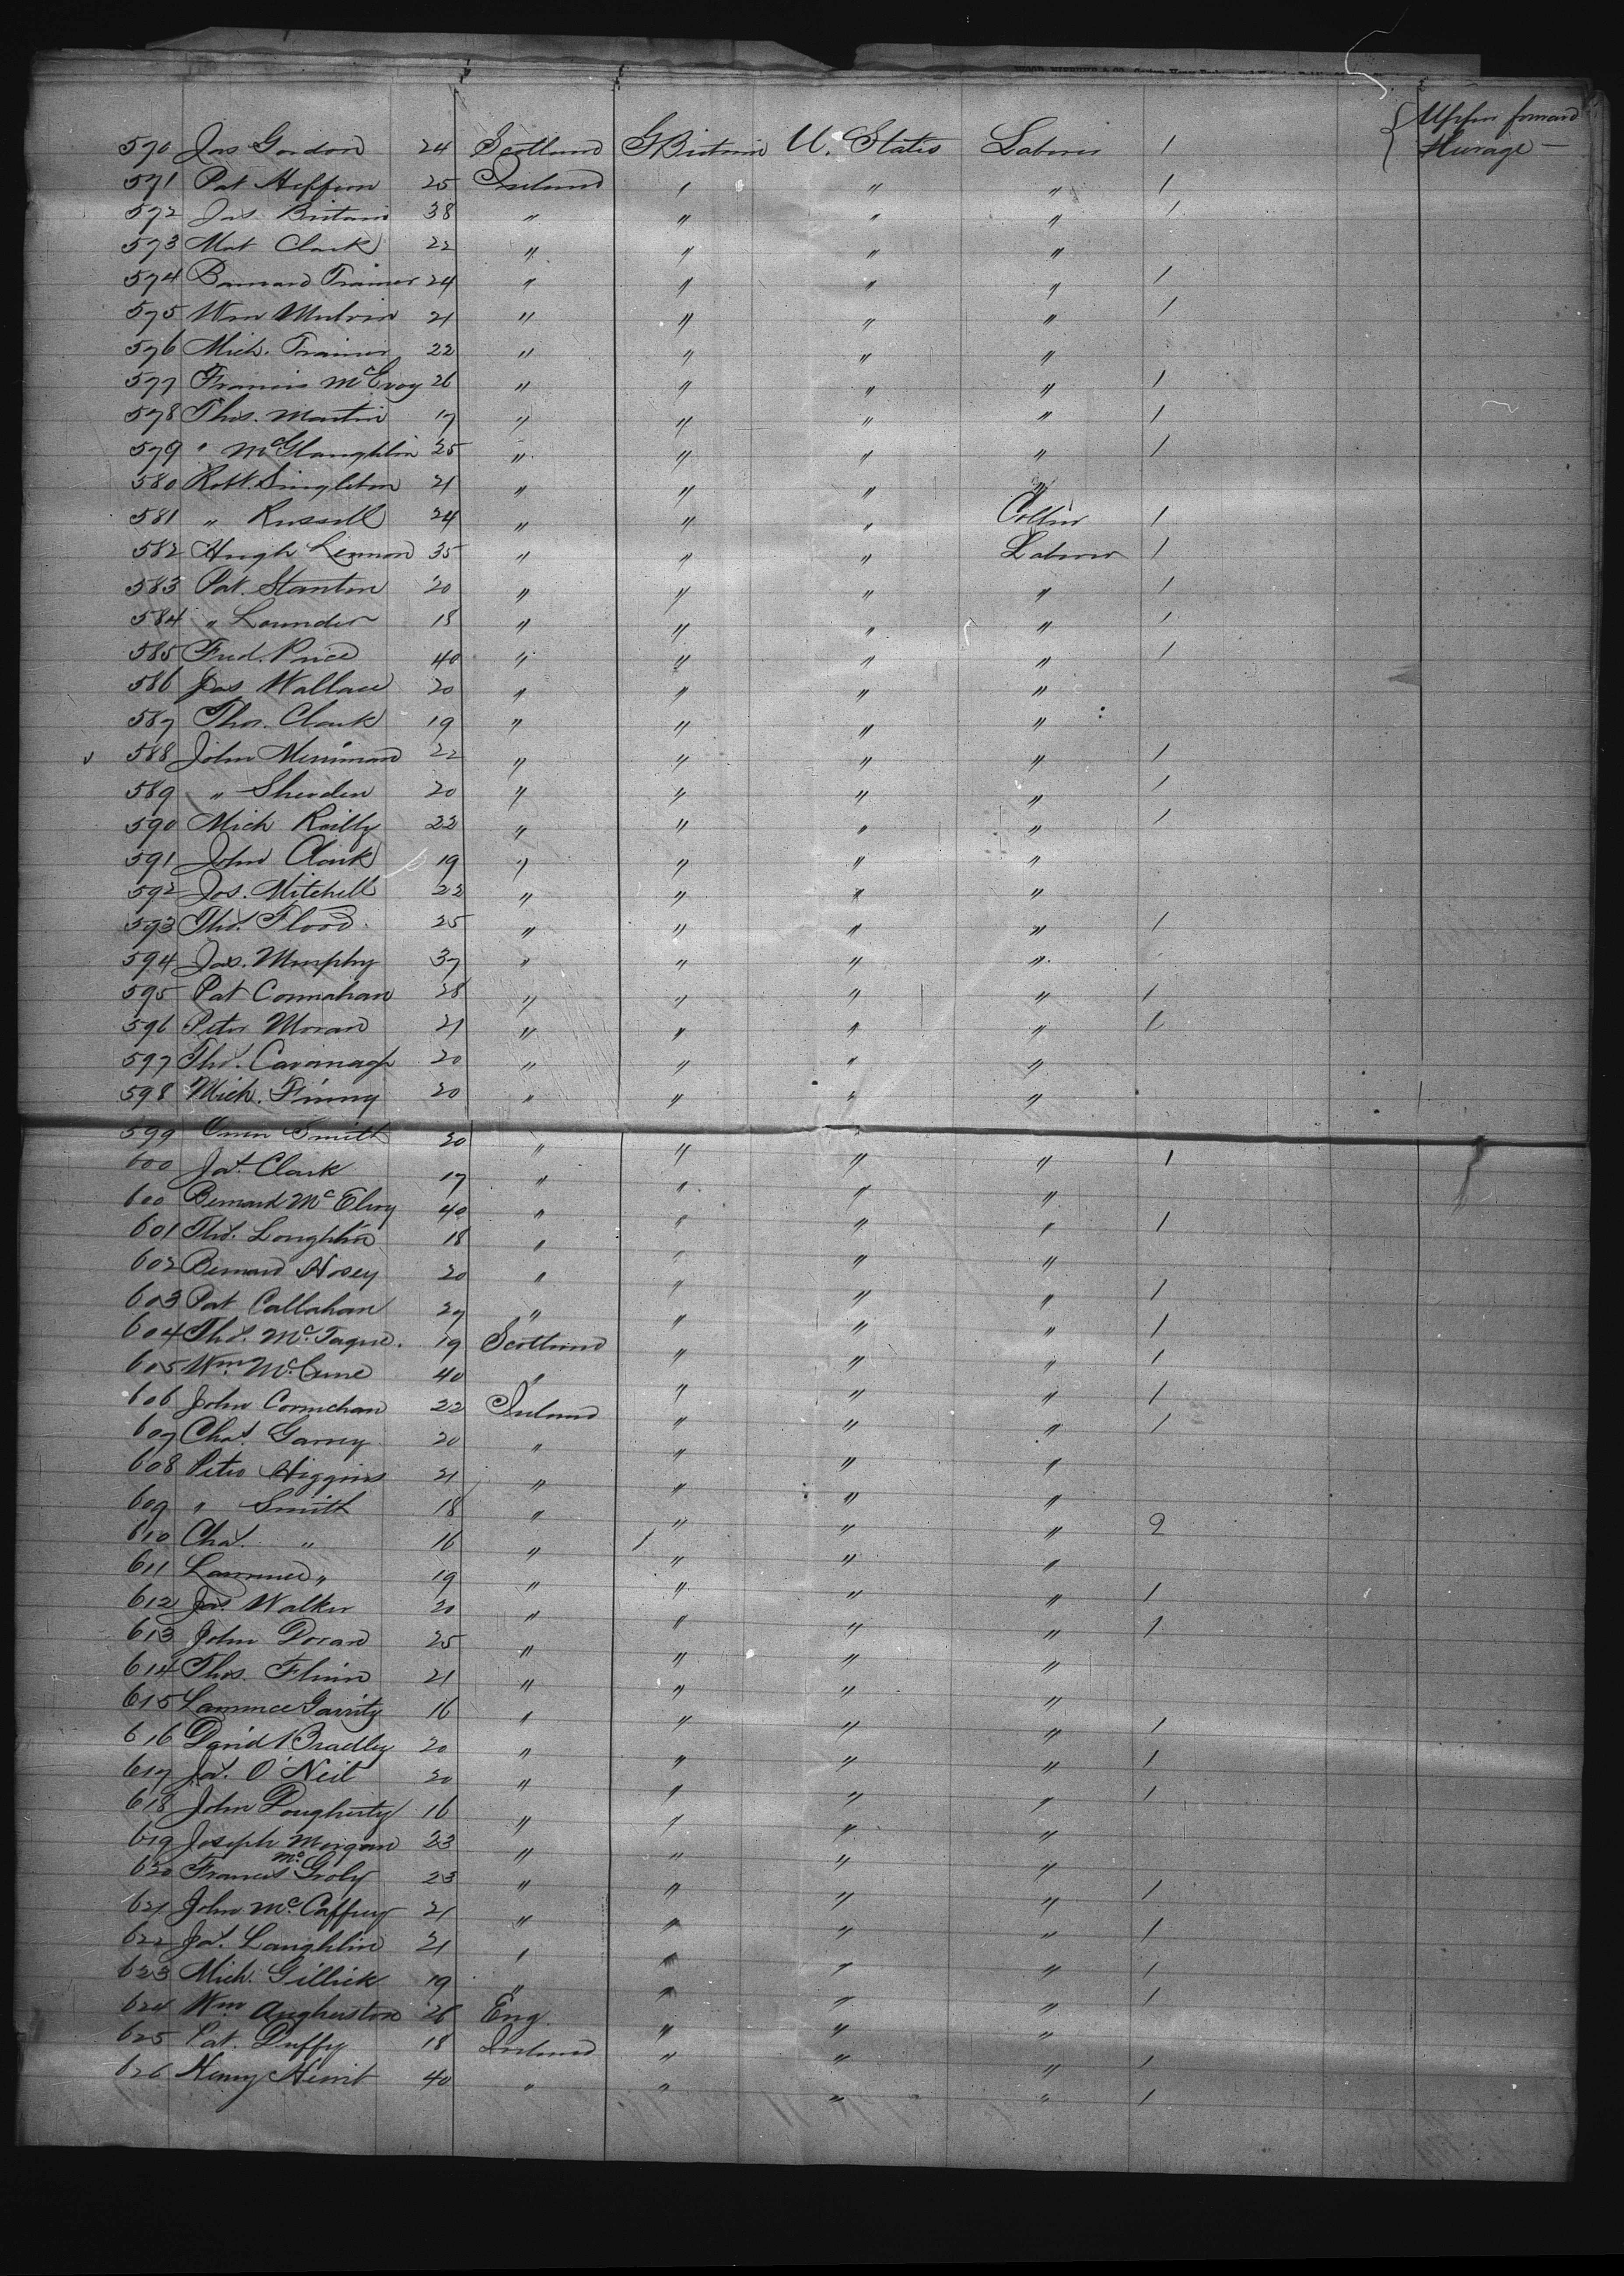 Upper forward
Steerage —
570 Jas Gordon 24 Scotland G Britain U. States Laborer 1
571 Pat Heffron 25 Ireland " " " 1
572 Jas Britain 38 " " " " 1
573 Mat Clark 22 " " " "
574 Barnard Trainer 24 " " " " 1
575 Wm 21 " " " " 1
576 Mich. Trainer 22 " " " "
577 Francis McEvoy 26 " " " " 1
578 Thos. Martin 17 " " " " 1
579 " McGlaughlin 25 " " " " 1
580 Robt. Singleton 21 " " " "
581 " Russell 24 " " " 1
582 Hugh Lennon 35 " " " Laborer 1
583 Pat. Stanton 20 " " " " 1
584 " Launder 18 " " " " 1
585 Fred. Price 40 " " " " 1
586 Jas Wallace 20 " " " "
587 Thos. Clark 19 " " " "
588 John Merriman 22 " " " " 1
589 " Sherden 20 " " " " 1
590 Mich Reilly 22 " " " " 1
591 John Clark 19 " " " "
592 Jos. Mitchell 22 " " " "
593 Thos. Flood 25 " " " " 1
594 Jas. Murphy 37 " " " "
595 Pat Connahan 28 " " " " 1
596 Peter Moran 21 " " " " 1
597 Thos. Cavanagh 20 " " " "
598 Mich. Finny 20 " " " "
599 Owen Smith 20 " " " " 1
600 Jas. Clark 17 " " " "
600 Bernard McElroy 40 " " " " 1
601 Thos. Loughlin 18 " " " "
602 Bernard Hosey 20 " " " " 1
603 Pat Callahan 27 " " " " 1
604 Thos. McTague. 19 Scotland " " " 1
605 Wm. McCune 40 " " " " 1
606 John Cornichan 22 Ireland " " " 1
607 Chas. Garvey 20 " " " "
608 Peter Higgins 21 " " " "
609 " Smith 18 " " " " 2
610 Chas. " 16 " 1 " " "
611 Lawrence " 19 " " " " 1
612 Jas. Walker 20 " " " " 1
613 John Doran 25 " " " "
614 Thos. Flinn 21 " " " "
615 Lawrence Garrity 16 " " " " 1
616 David Bradley 20 " " " " 1
617 Jas. O'Neil 20 " " " " 1
618 John Dougherty 16 " " " "
619 Joseph Morgan 23 " " " "
620 Francis McGroly 23 " " " " 1
621 John McCaffrey 21 " " " " 1
622 Jas. Laughlin 21 " " " " 1
623 Mich. Gillick 19 " " " " 1
624 Wm Augherston 26 Eng. " " "
625 Pat. Duffy 18 Ireland " " " 1
626 Henry 40 " " " " 1